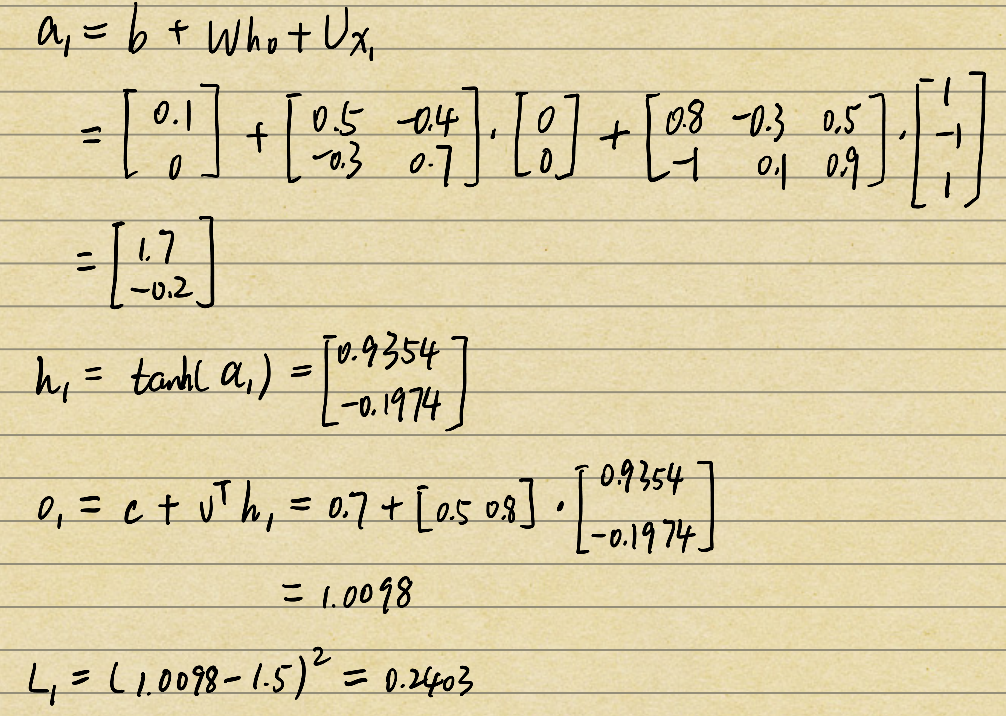 a₁ = b + Wh₀ + Ux₁
= [0.1; 0] + [0.5 -0.4; -0.3 0.7] · [0; 0] + [0.8 -0.3 0.5; -1 0.1 0.9] · [1; -1; 1]
= [1.7; -0.2]
h₁ = tanh(a₁) = [0.9354; -0.1974]
o₁ = c + vᵀh₁ = 0.7 + [0.5 0.8] · [0.9354; -0.1974]
= 1.0098
L₁ = (1.0098 - 1.5)² = 0.2403